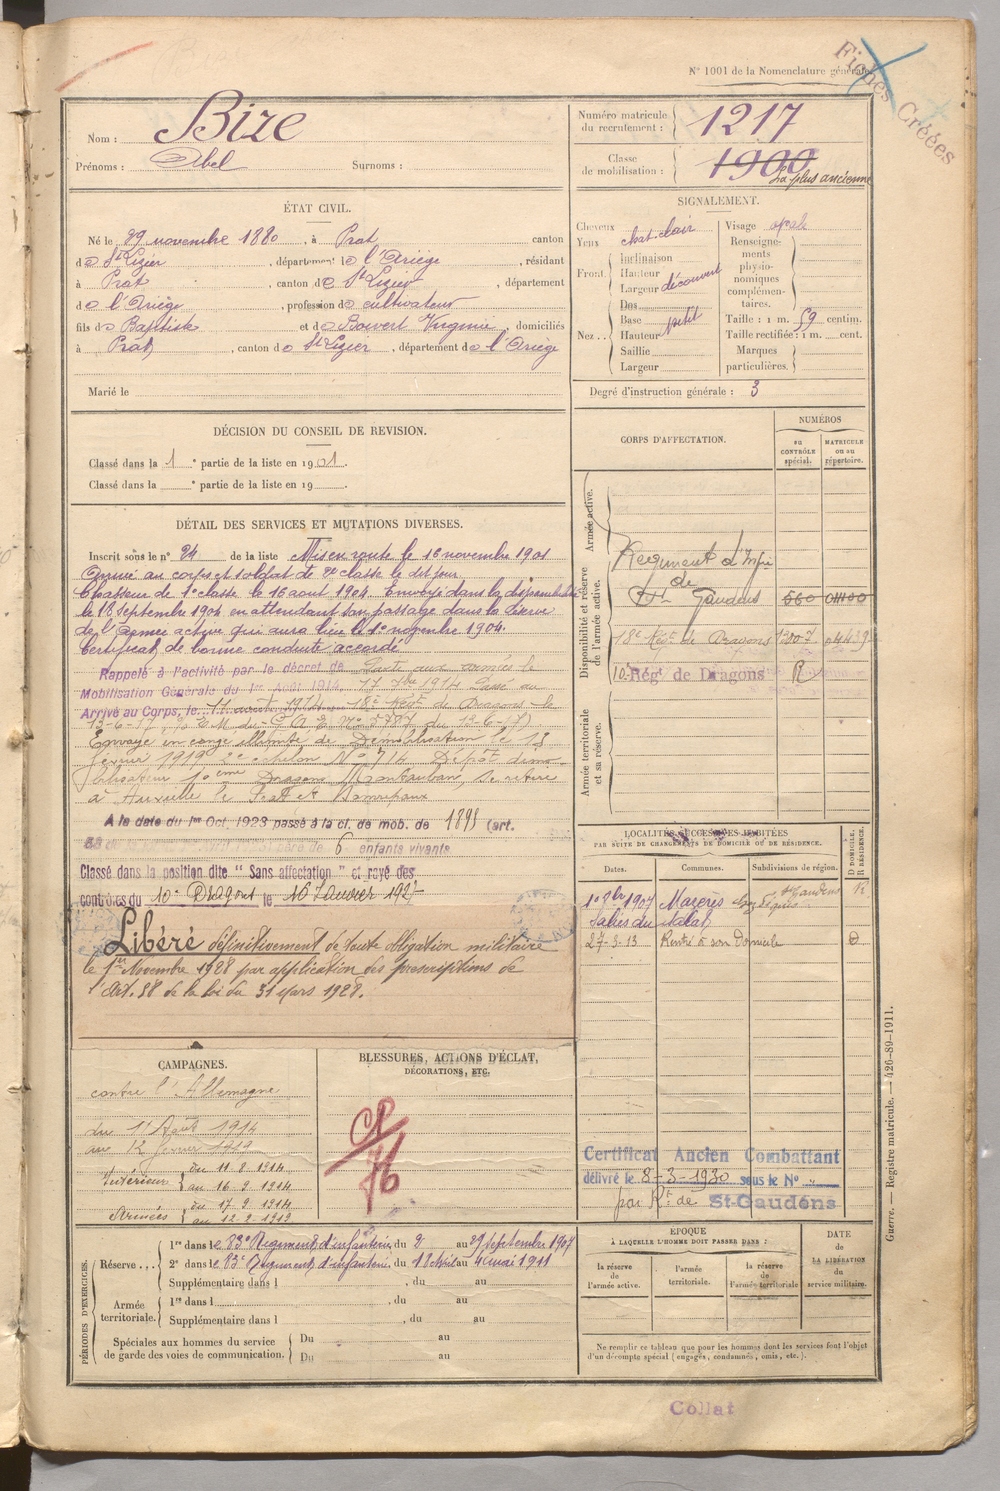 N° 1001 de la Nomenclature générale
Fiches Créées
Nom : Bize
Prénoms : Abel Surnoms :
Numéro matricule du recrutement : 1217
Classe de mobilisation : 1900
La plus ancienne
ÉTAT CIVIL.
Né le 29 novembre 1880, à Prat canton
de St Lizier, département de l'Ariège, résidant
à Prat, canton de St Lizier, département
de l'Ariège, profession de cultivateur
fils de Baptiste et de Virginie, domiciliés
à Prat, canton de St Lizier, département de l'Ariège
Marié le
SIGNALEMENT.
Cheveux chat. clair
Yeux
Front. Inclinaison
Hauteur
Largeur découvert
Nez.. Dos
Base petit
Hauteur
Saillie
Largeur
Visage
Renseignements physionomiques complémentaires.
Taille : 1 m. 59 centim.
Taille rectifiée : 1 m. cent.
Marques particulières.
Degré d'instruction générale : 3
DÉCISION DU CONSEIL DE REVISION.
Classé dans la 1 e partie de la liste en 1901.
Classé dans la e partie de la liste en 19
DÉTAIL DES SERVICES ET MUTATIONS DIVERSES.
Inscrit sous le n° 24 de la liste Mis en route le 16 novembre 1901
Arrivé au corps et soldat de 2e classe le dit jour
Chasseur de 1e classe le 16 aout 1904. Envoyé dans la disponibilité
le 18 septembre 1904 en attendant son passage dans la réserve
de l'armée active qui aura lieu le 1er novembre 1904.
Certificat de bonne conduite accordé
Rappelé à l'activité par le décret de
Mobilisation Générale du 1er Août 1914.
Arrivé au Corps, le 11 aout 1914
Parti aux armées le
17 7bre 1914 Passé au
18e Régt de Dragons le
12-6-17
Envoyé en congé illimité de Démobilisation le 13
février 1919 2e échelon N° 714 Dépôt démo-
bilisateur 10ème Dragons Montauban, se retire
à
A la date du 1er Oct. 1923 passé à la cl. de mob. de 1893 (art.
père de 6 enfants vivants
Classé dans la position dite " Sans affectation " et rayé des
contrôles du 10e Dragons le 16 Janvier 1927
Libéré définitivement de toute obligation militaire
le 1er Novembre 1928 par application des prescriptions de
l'Art. 98 de la loi du 31 Mars 1928.
CORPS D'AFFECTATION.
NUMÉROS
au CONTRÔLE spécial.
MATRICULE ou au répertoire.
Armée active.
Disponibilité et réserve de l'armée active.
Régiment d'Infie
de
St Gaudens 560 01100
18e Régt de Dragons
10e Régt de Dragons R
Armée territoriale et sa réserve.
LOCALITÉS SUCCESSIVES HABITÉES
PAR SUITE DE CHANGEMENTS DE DOMICILE OU DE RÉSIDENCE.
Dates. Communes. Subdivisions de région. D DOMICILE, R RÉSIDENCE.
1907 Mazères St Gaudens R
Salies du Salat
27-3-13 Rentré à son Domicile D
CAMPAGNES.
contre l'Allemagne
du 11 Août 1914
au 12 février 1919
Intérieur du 11.8.1914
au 16.9.1914
Armées du 17.9.1914
au 12.2.1919
BLESSURES, ACTIONS D'ÉCLAT,
DÉCORATIONS, ETC.
Certificat Ancien Combattant
délivré le 8-3-1930 sous le N°
par Rt de St-Gaudens
PÉRIODES D'EXERCICES.
Réserve... 1re dans le 83e Régiment d'infanterie du 2 au 29 septembre 1907
2e dans le 83e Régiment d'infanterie du 18 avril au 4 mai 1911
Supplémentaire dans l , du au
Armée territoriale. 1re dans l , du au
Supplémentaire dans l , du au
Spéciales aux hommes du service de garde des voies de communication. Du au
Du au
EPOQUE
À LAQUELLE L'HOMME DOIT PASSER DANS :
la réserve de l'armée active.
l'armée territoriale.
la réserve de l'armée territoriale
DATE de LA LIBÉRATION du service militaire.
Ne remplir ce tableau que pour les hommes dont les services font l'objet
d'un décompte spécial (engagés, condamnés, omis, etc.).
Guerre. — Registre matricule. — 426-89-1911.
Collat